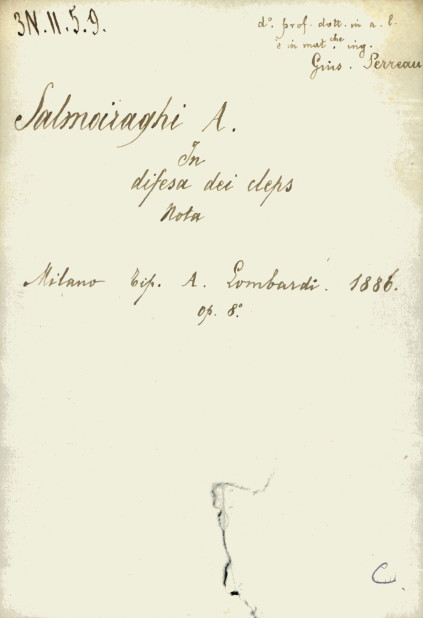 3N.11.5.9.
d°. prof. dott. in a. l.
e in mat.che ing.
Gius. Perreau
Salmoiraghi A.
In
difesa dei cleps
Nota
Milano Tip. A. Lombardi. 1886.
op. 8.°
C